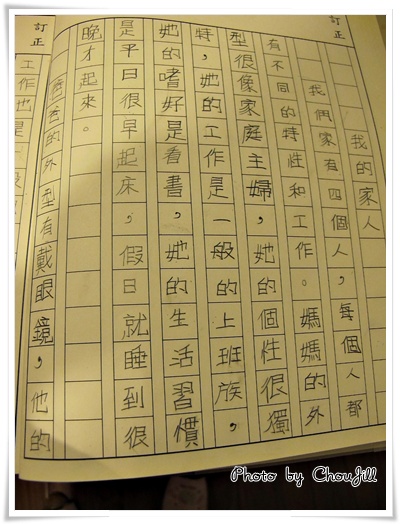 訂正
我的家人
我們家有四個人,每個人都
有不同的特性和工作。媽媽的外
型很像家庭主婦,她的個性很獨
特,她的工作是一般的上班族,
她的嗜好是看書,她的生活習慣
是平日很早起床,假日就睡到很
晚才起來。
爸爸的外型有戴眼鏡,他的
訂正
工作也是
Photo by ChouJill